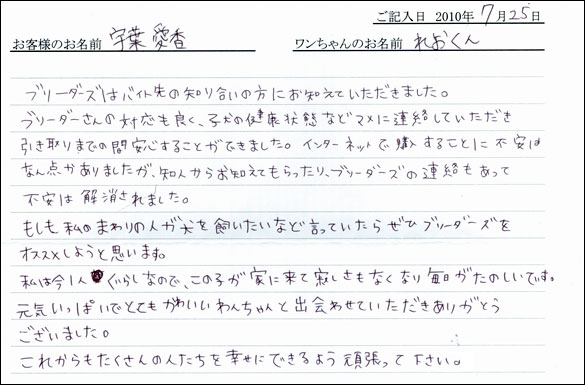 ご記入日 2010年 7月25日
お客様のお名前 宇葉 愛香 ワンちゃんのお名前 れおくん
ブリーダーズはバイト先の知り合いの方にお知えていただきました。
ブリーダーさんの対応も良く、子犬の健康状態などマメに連絡していただき
引き取りまでの間安心することができました。インターネットで購入することに不安は
なん点かありましたが、知人からお知えてもらったり、ブリーダーズの連絡もあって
不安は解消されました。
もしも私のまわりの人が犬を飼いたいなど言っていたらぜひブリーダーズを
オススメしようと思います。
私は今1人ぐらしなので、この子が家に来て寂しさもなくなり毎日がたのしいです。
元気いっぱいでとてもかわいいわんちゃんと出会わせていただきありがとう
ございました。
これからもたくさんの人たちを幸せにできるよう頑張って下さい。